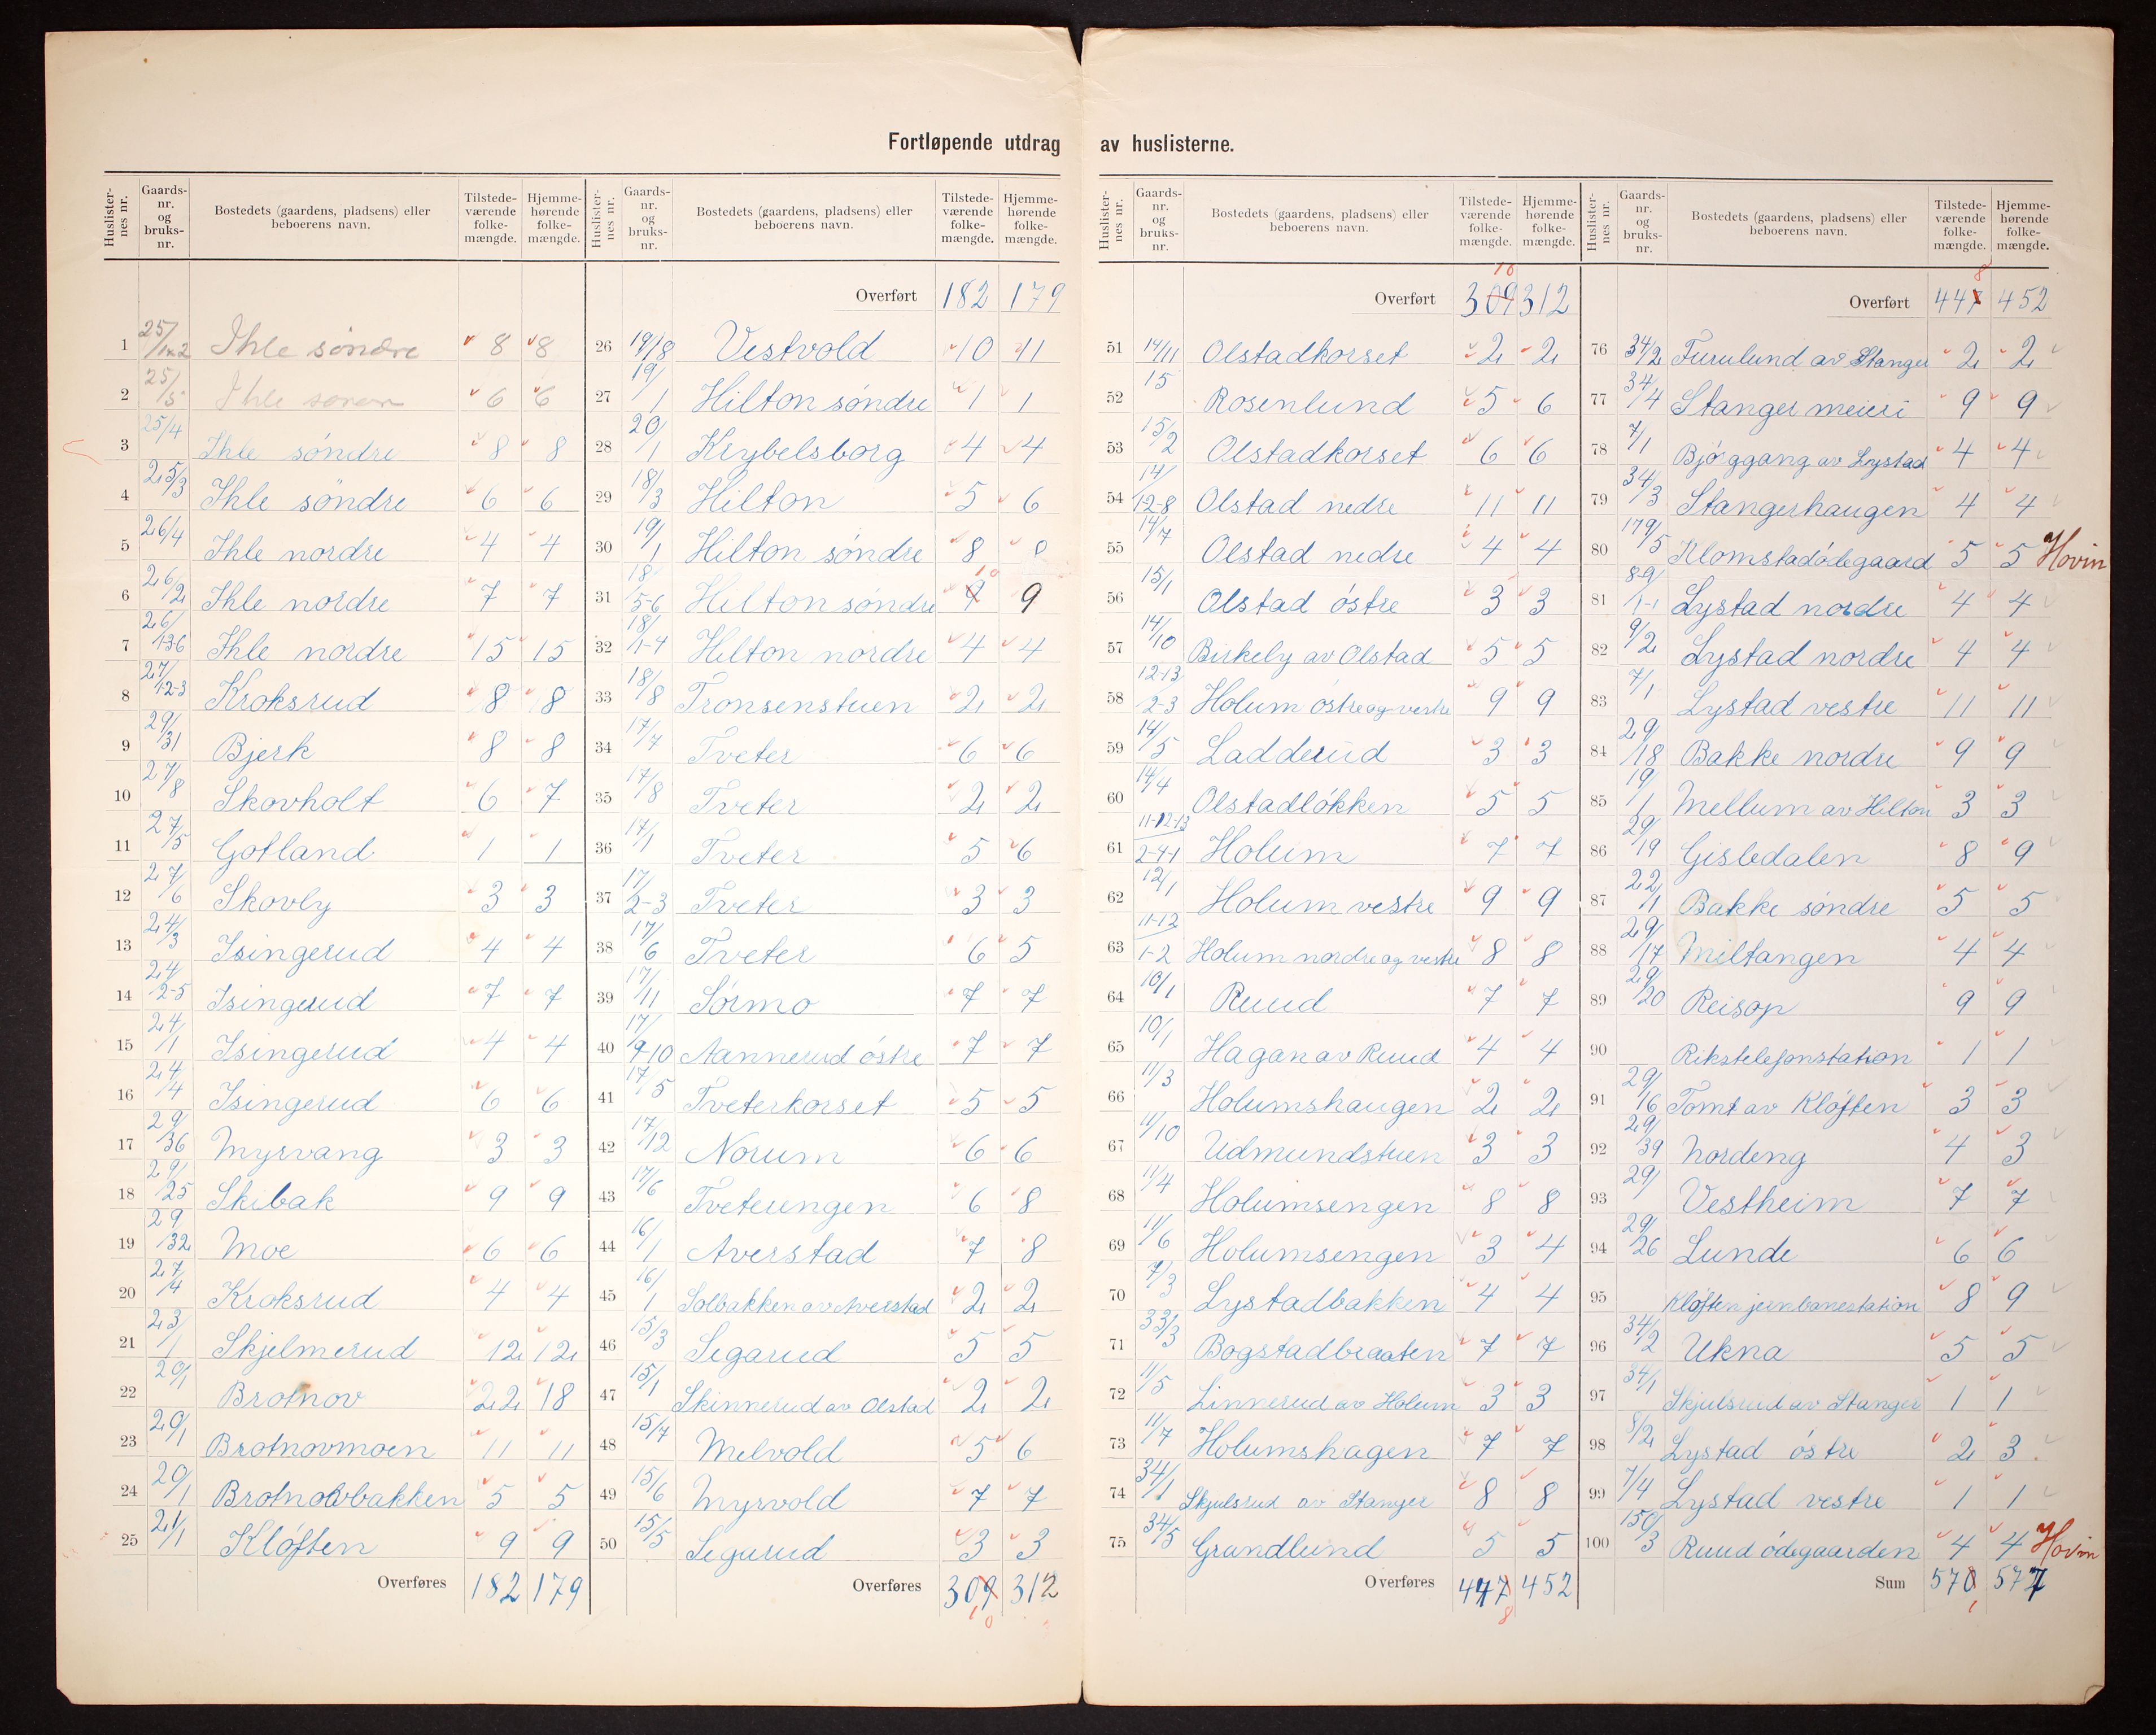 Fortløpende utdrag av huslisterne.
Huslisternes nr. Gaards-nr. og bruks-nr. Bostedets (gaardens, pladsens) eller beboerens navn. Tilstedeværende folkemængde. Hjemmehørende folkemængde.
1 25/1x2 Ihle søndre 8 8
2 25/5 Ihle 6 6
3 25/4 Ihle søndre 8 8
4 25/3 Ihle søndre 6 6
5 26/4 Ihle nordre 4 4
6 26/2 Ihle nordre 7 7
7 26/1-3-6 Ihle nordre 15 15
8 27/1-2-3 Kroksrud 8 8
9 29/31 Bjerk 8 8
10 27/8 Skovholt 6 7
11 27/5 Gotland 1 1
12 27/6 Skovly 3 3
13 24/3 Isingerud 4 4
14 24/2-5 Isingerud 7 7
15 24/1 Isingerud 4 4
16 24/4 Isingerud 6 6
17 29/36 Myrvang 3 3
18 29/25 Skibak 9 9
19 29/32 Moe 6 6
20 27/4 Kroksrud 4 4
21 23/1 Skjelmerud 12 12
22 20/1 Brotnov 22 18
23 20/1 Brotnovmoen 11 11
24 20/1 Brotnovbakken 5 5
25 21/1 Kløften 9 9
Overføres 182 179
Huslisternes nr. Gaards-nr. og bruks-nr. Bostedets (gaardens, pladsens) eller beboerens navn. Tilstedeværende folkemængde. Hjemmehørende folkemængde.
Overført 182 179
26 19/8 Vestvold 10 11
27 19/1 Hilton søndre 1 1
28 20/1 Krybelsborg 4 4
29 18/3 Hilton 5 6
30 19/1 Hilton søndre 8 8
31 18/5-6 Hilton søndre 9 10 9
32 18/1-4 Hilton nordre 4 4
33 18/8 Tronsenstuen 2 2
34 17/7 Tveter 6 6
35 17/8 Tveter 2 2
36 17/1 Tveter 5 6
37 17/2-3 Tveter 3 3
38 17/6 Tveter 6 5
39 17/11 Sørmo 7 7
40 17/9-10 Aannerud østre 7 7
41 17/5 Tveterkorset 5 5
42 17/12 Norum 6 6
43 17/6 Tveterengen 6 8
44 16/1 Averstad 7 8
45 16/1 Solbakken av Averstad 2 2
46 15/3 Segarud 5 5
47 15/1 Skinnerud av Olstad 2 2
48 15/7 Melvold 5 6
49 15/6 Myrvold 7 7
50 15/5 Segarud 3 3
Overføres 309 10 312
Huslisternes nr. Gaards-nr. og bruks-nr. Bostedets (gaardens, pladsens) eller beboerens navn. Tilstedeværende folkemængde. Hjemmehørende folkemængde.
Overført 309 10 312
51 14/11 Olstadkorset 2 2
52 15 Rosenlund 5 6
53 15/2 Olstadkorset 6 6
54 14/12-8 Olstad nedre 11 11
55 14/7 Olstad nedre 4 4
56 15/1 Olstad østre 3 3
57 14/10 Birkely av Olstad 5 5
58 12-13/2-3 Holum østre og vestre 9 9
59 14/5 Ladderud 3 3
60 14/4 Olstadløkken 5 5
61 11-12-13/2-4-1 Holum 7 7
62 12/1 Holum vestre 9 9
63 11-12/1-2 Holum nordre og vestre 8 8
64 10/1 Ruud 7 7
65 10/1 Hagan av Ruud 4 4
66 11/3 Holumshaugen 2 2
67 11/10 Udmundstuen 3 3
68 11/4 Holumsengen 8 8
69 11/6 Holumsengen 3 4
70 7/3 Lystadbakken 4 4
71 33/3 Bogstadbraaten 7 7
72 11/5 Linnerud av Holum 3 3
73 11/7 Holumshagen 7 7
74 34/1 Skjulsrud av Stanger 8 8
75 34/5 Grandlund 5 5
Overføres 447 8 452
Huslisternes nr. Gaards-nr. og bruks-nr. Bostedets (gaardens, pladsens) eller beboerens navn. Tilstedeværende folkemængde. Hjemmehørende folkemængde.
Overført 447 8 452
76 34/2 Furulund av Stanger 2 2
77 34/4 Stanger meieri 9 9
78 7/1 Bjøggang av Lystad 4 4
79 34/3 Stangerhaugen 4 4
80 179/5 Klomstadødegaard 5 5 Hovin
81 8-9/1-1 Lystad nordre 4 4
82 9/2 Lystad nordre 4 4
83 7/1 Lystad vestre 11 11
84 29/18 Bakke nordre 9 9
85 19/1 Mellum av Hilton 3 3
86 29/19 Gisledalen 8 9
87 22/1 Bakke søndre 5 5
88 29/17 Miltangen 4 4
89 29/20 Reisop 9 9
90 Rikstelefonstation 1 1
91 29/16 Tomt av Kløften 3 3
92 29/39 Nordeng 4 3
93 29/ Vestheim 7 7
94 29/26 Lunde 6 6
95 Kløften jernbanestation 8 9
96 34/2 Ukna 5 5
97 34/1 Skjulsrud av Stanger 1 1
98 8/2 Lystad østre 2 3
99 7/4 Lystad vestre 1 1
100 150/3 Ruud ødegaarden 4 4 Hovin
Sum 570 1 577